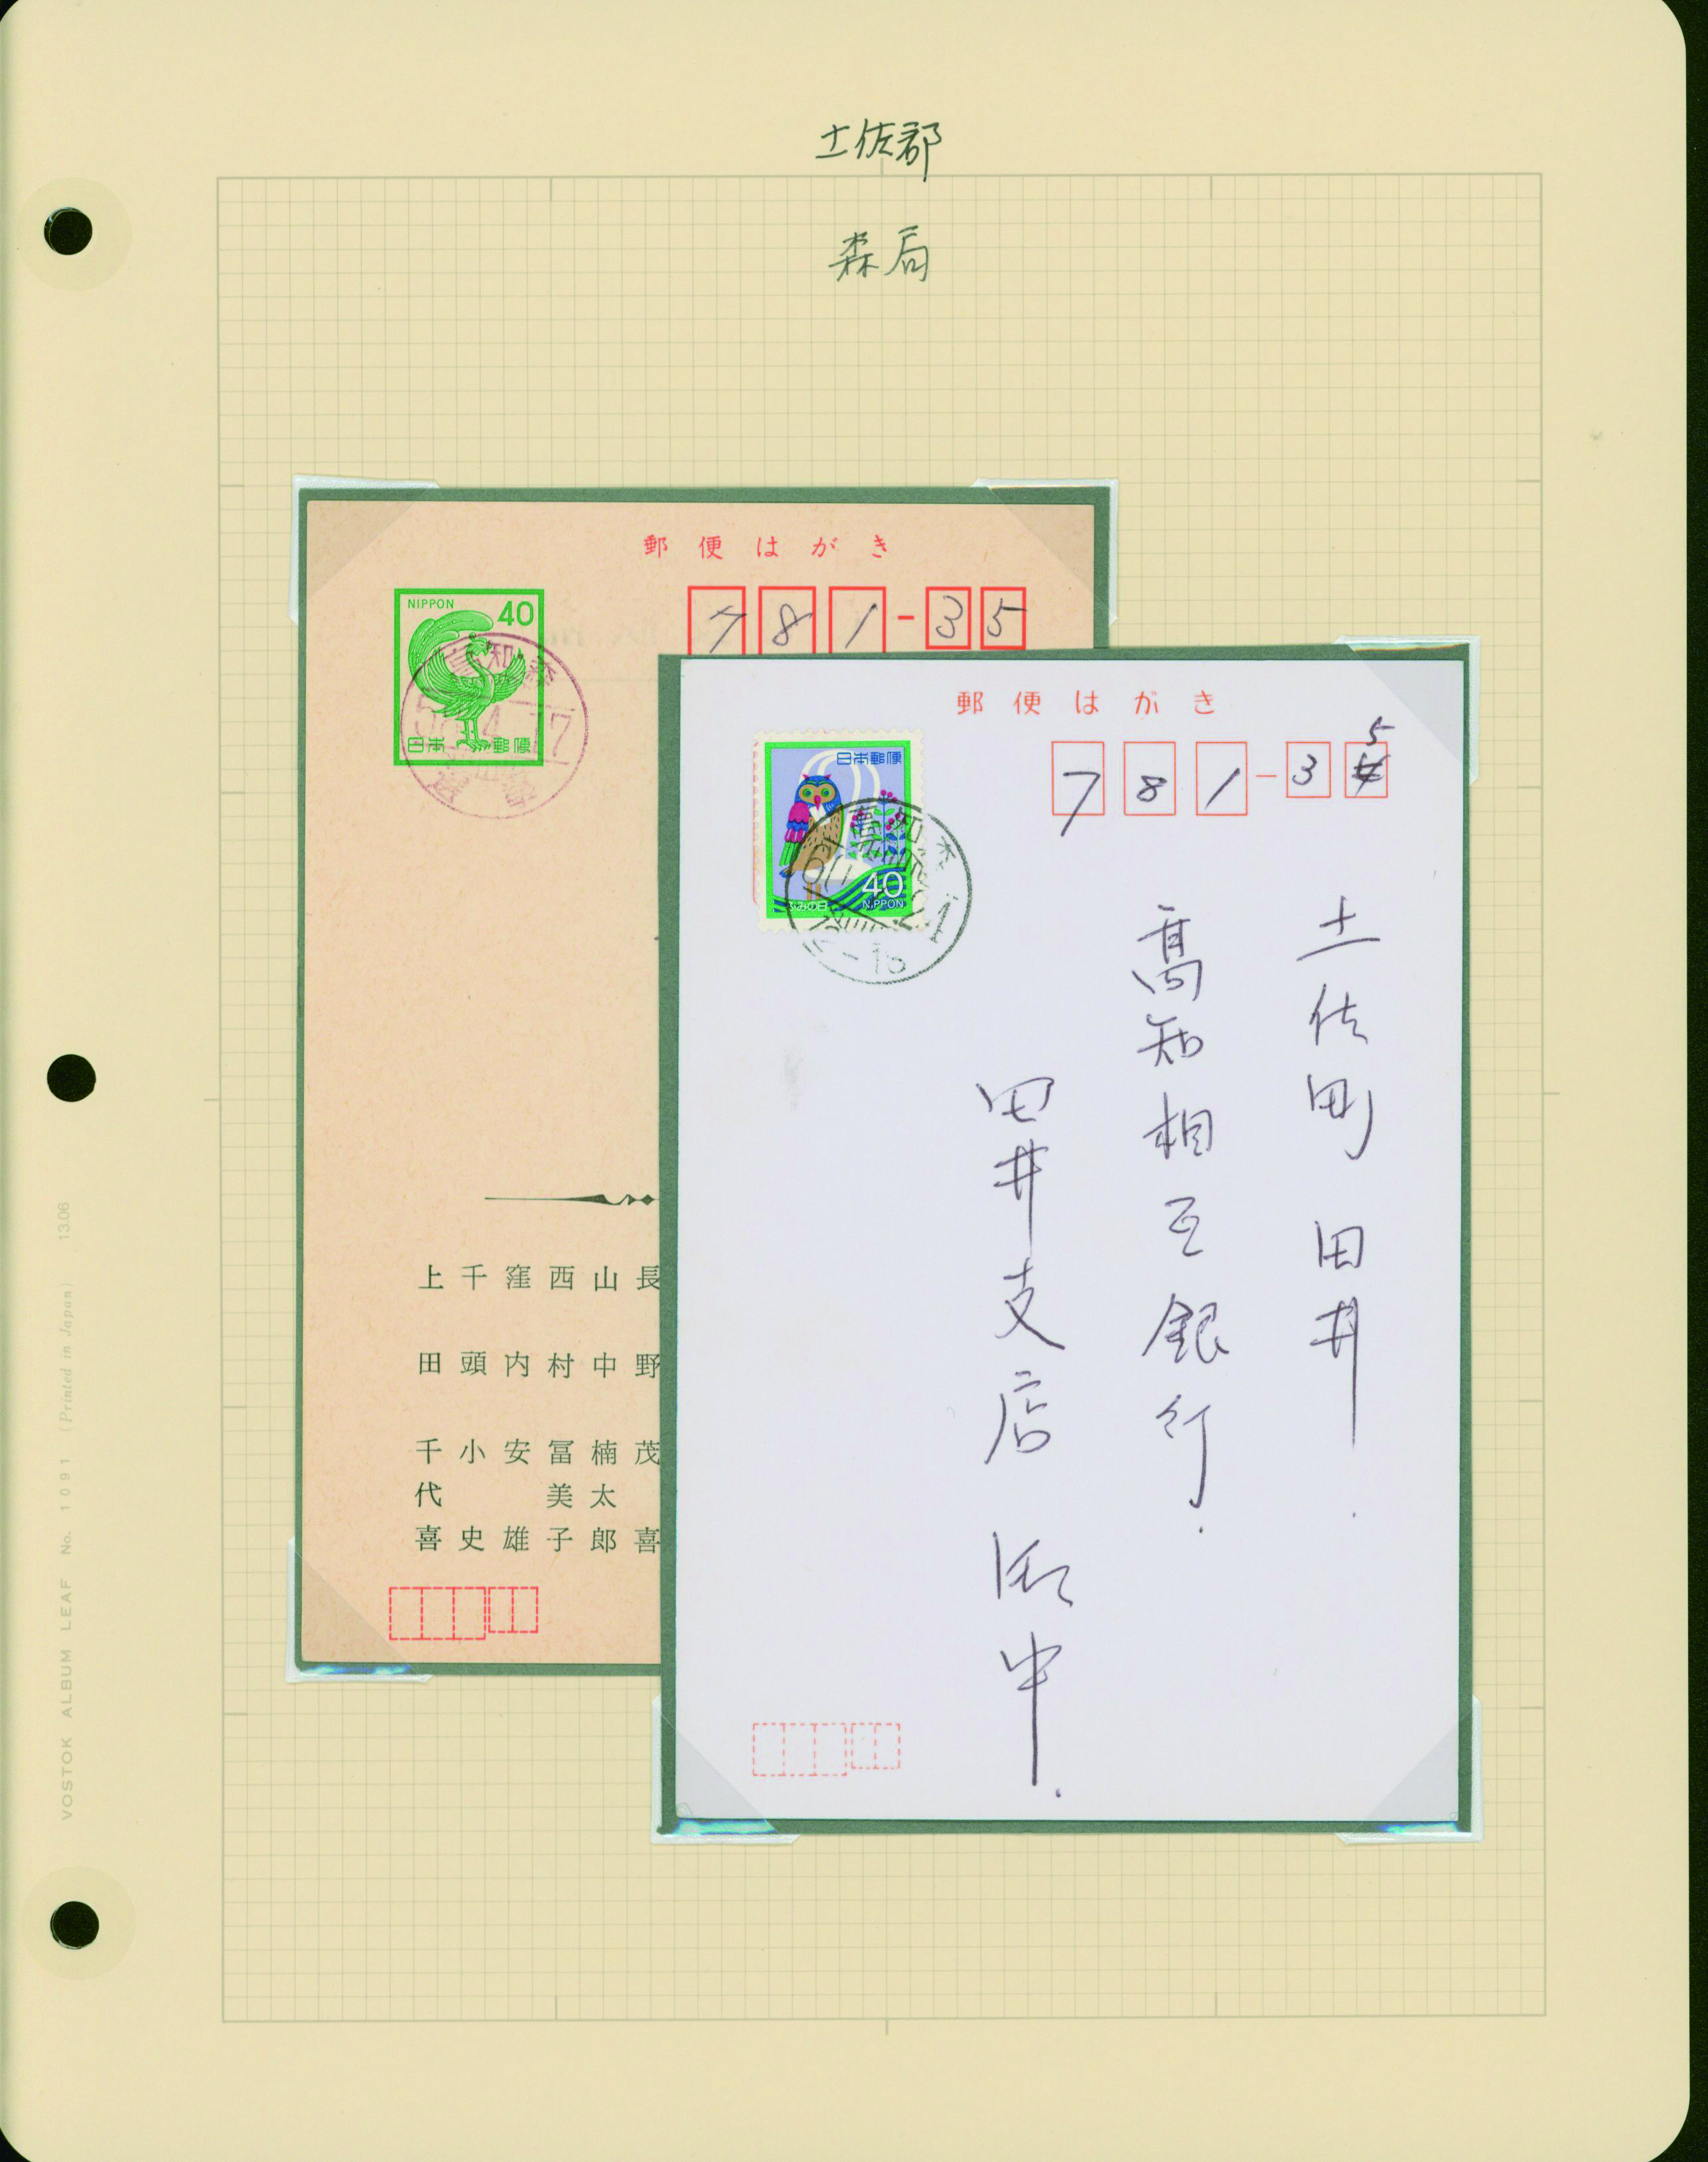 土佐郡
森局
郵便はがき
NIPPON 40
日本郵便
781-35
高知森
長野茂喜
山中楠太郎
西村冨美子
窪内安雄
千頭小史
上田千代喜
郵便はがき
日本郵便
40
NIPPON
ふみの日
781-35
高知
土佐町田井.
高知相互銀行.
田井支店 御中.
VOSTOK ALBUM LEAF No. 1091 (Printed in Japan) 13.06